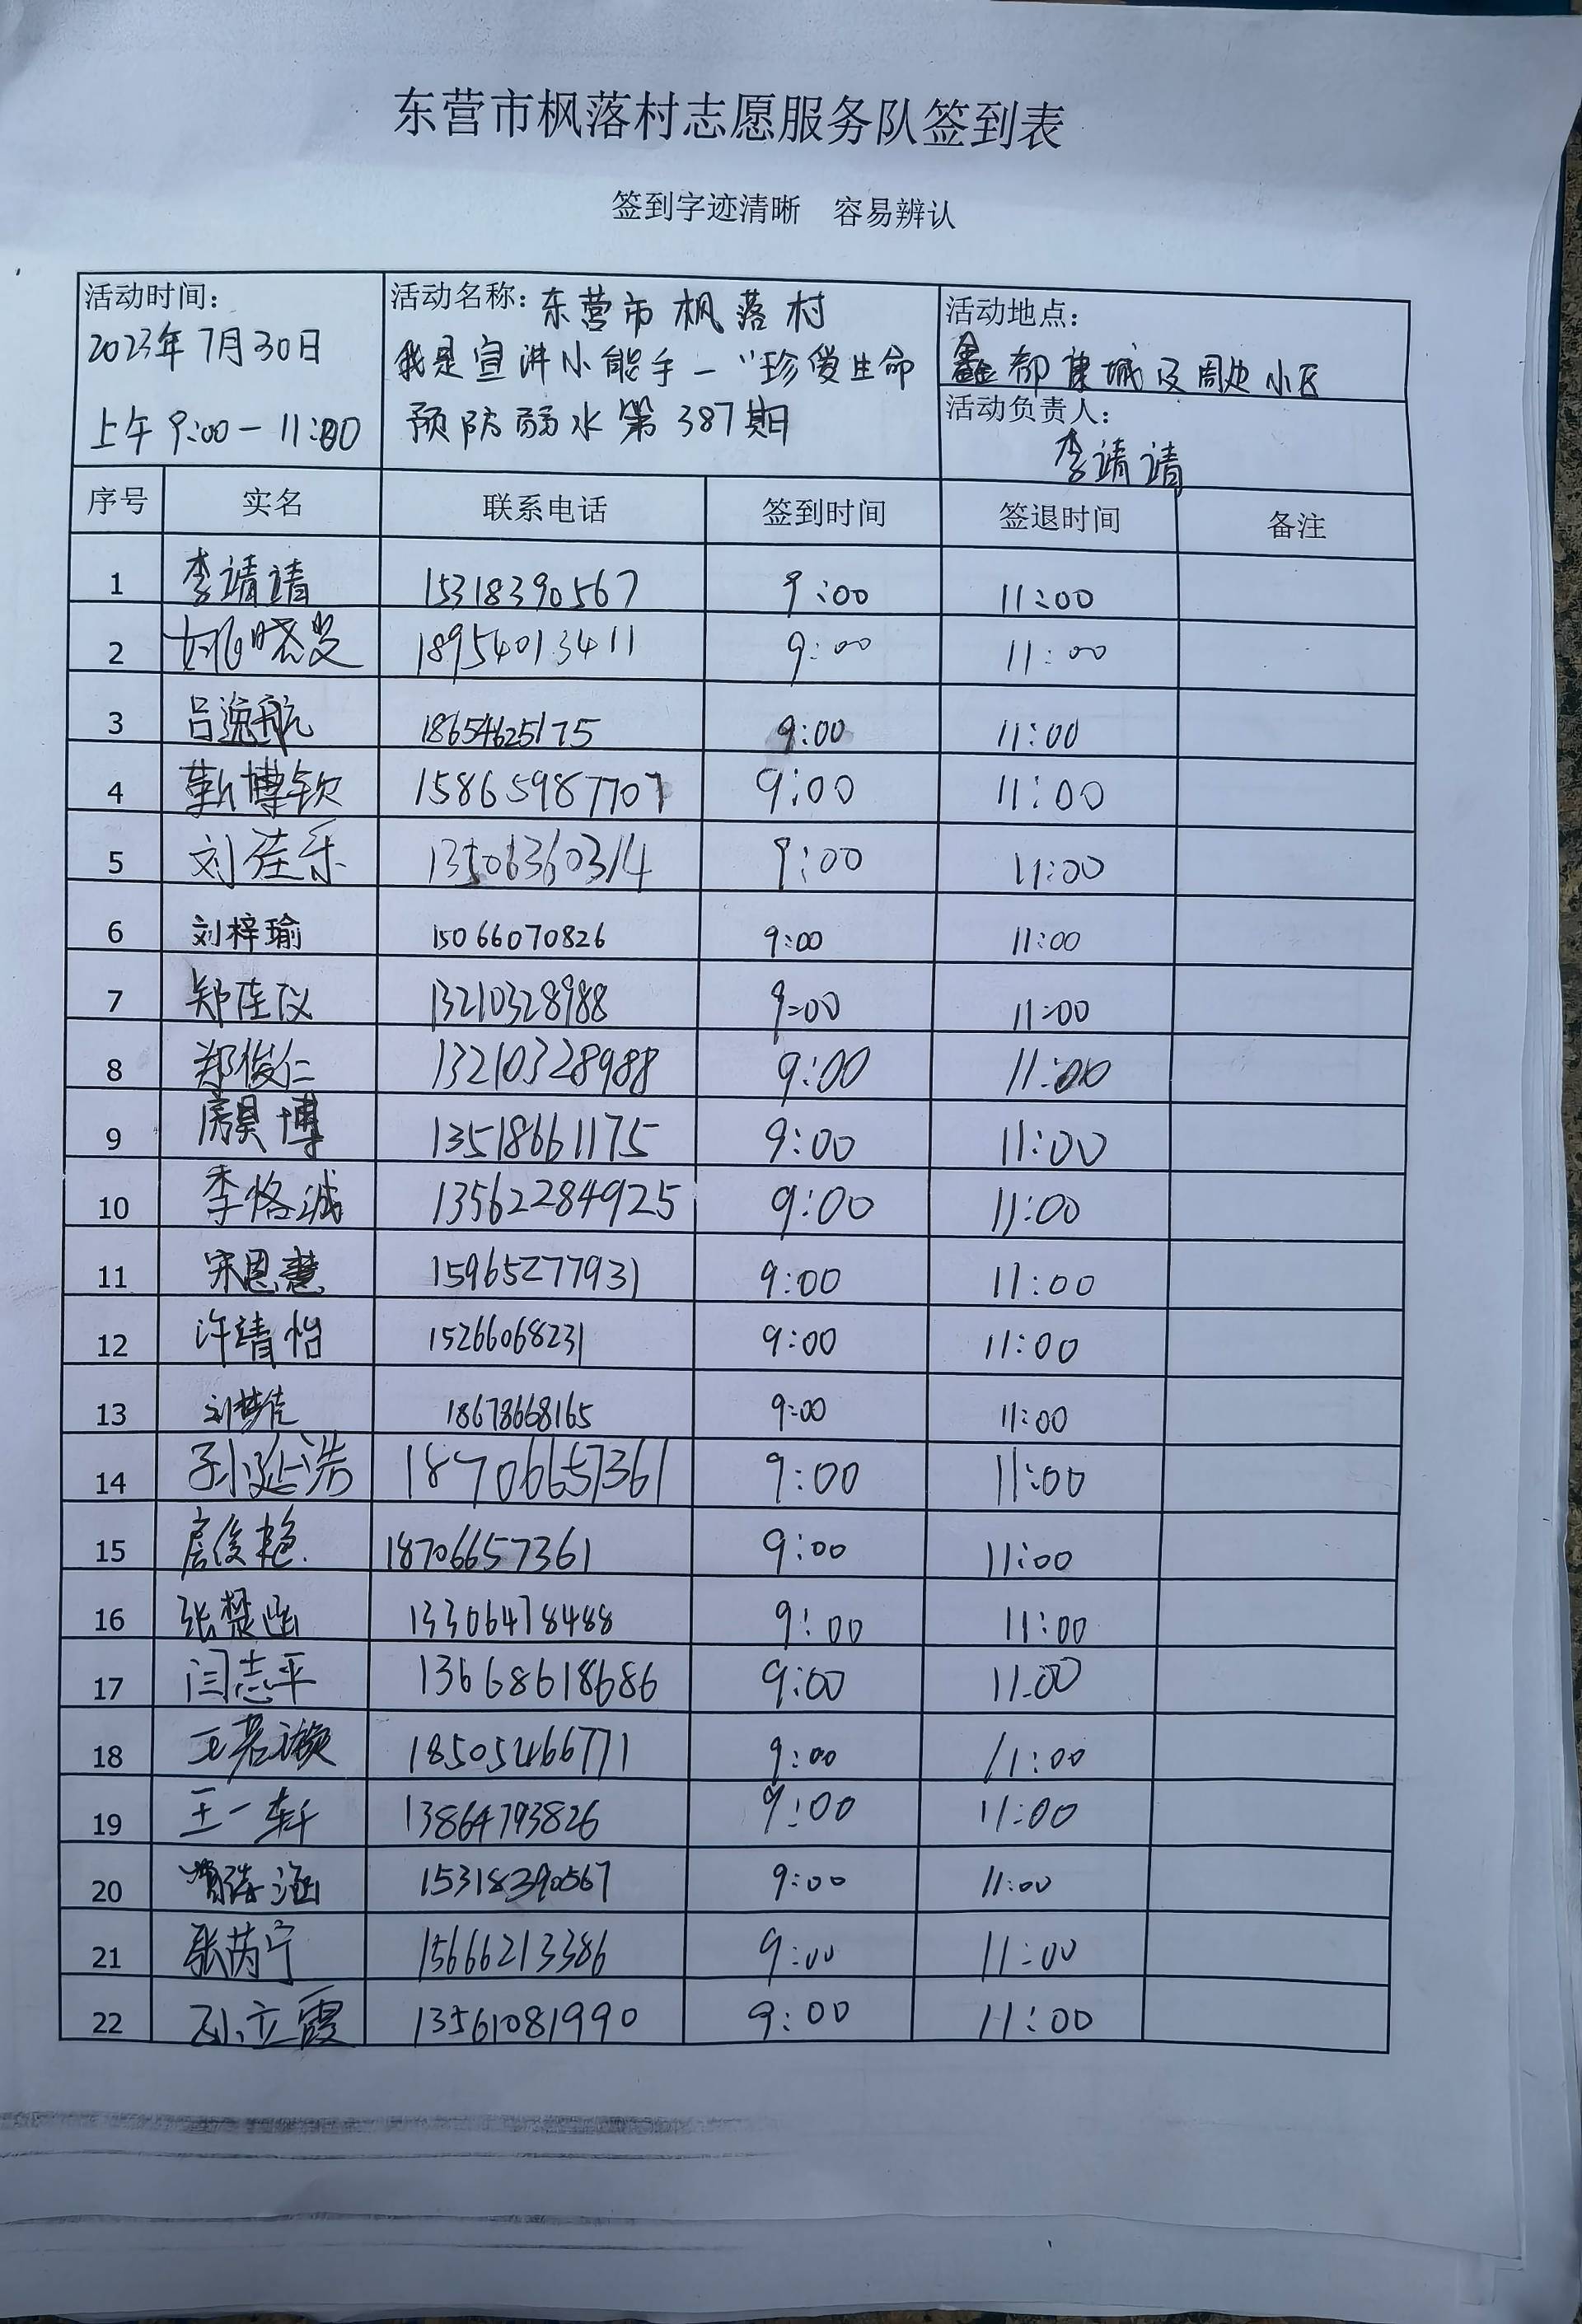 东营市枫落村志愿服务队签到表
签到字迹清晰 容易辨认
活动时间：
2023年7月30日
上午9:00-11:00
活动名称：东营市枫落村
我是宣讲小能手-“珍爱生命
预防溺水第387期
活动地点：
鑫都康城及周边小区
活动负责人：
李靖靖
序号 实名 联系电话 签到时间 签退时间 备注
1 李靖靖 15318390567 9:00 11:00
2 姚晓 18954013411 9:00 11:00
3 吕逸航 18654625175 9:00 11:00
4 靳博钦 15865987707 9:00 11:00
5 刘佳乐 13506360314 9:00 11:00
6 刘梓瑜 15066070826 9:00 11:00
7 郑佳仪 13210328988 9:00 11:00
8 郑俊仁 13210328988 9:00 11:00
9 房昊博 13518661175 9:00 11:00
10 李恪诚 13562284925 9:00 11:00
11 宋恩慧 15965277931 9:00 11:00
12 许靖怡 15266068231 9:00 11:00
13 刘梦佳 18678668165 9:00 11:00
14 孙延浩 18706657361 9:00 11:00
15 房俊艳 18706657361 9:00 11:00
16 张楚函 13306478488 9:00 11:00
17 闫志平 13668618686 9:00 11:00
18 王若漩 18505466771 9:00 11:00
19 王一轩 13864793826 9:00 11:00
20 15318390567 9:00 11:00
21 张芮宁 15666213386 9:00 11:00
22 孙立霞 13561081990 9:00 11:00